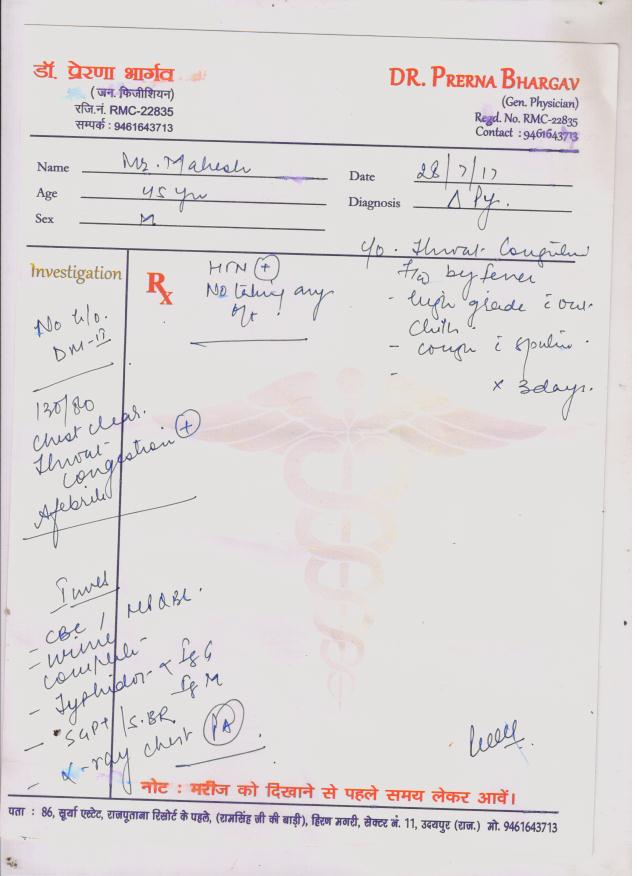 डॉ. प्रेरणा भार्गव
(जन. फिजीशियन)
रजि.नं. RMC-22835
सम्पर्क : 9461643713
DR. PRERNA BHARGAV
(Gen. Physician)
Regd. No. RMC-22835
Contact : 9461643713
Name Mr. Mahesh
Age 45 yrs
Sex M
Date 28/7/17
Diagnosis Δ Py.
c/o. Throat Congestion
F/w by fever
- high grade c
chills.
- cough c sputum.
-
x 3 days.
Investigation
Rx
HTN (+)
No taking any
No H/o.
DM-II
130/80
Chest clear.
Throat-
Congestion (+)
Afebrile
Invest
- CBC /
- Urine
complete
- Typhidot- IgG
IgM
- SGPT / S.BR.
- X-ray chest (PA)
नोट : मरीज को दिखाने से पहले समय लेकर आवें।
पता : 86, सूर्या एस्टेट, राजपूताना रिसोर्ट के पहले, (रामसिंह जी की बाड़ी), हिरण मगरी, सेक्टर नं. 11, उदयपुर (राज.) मो. 9461643713